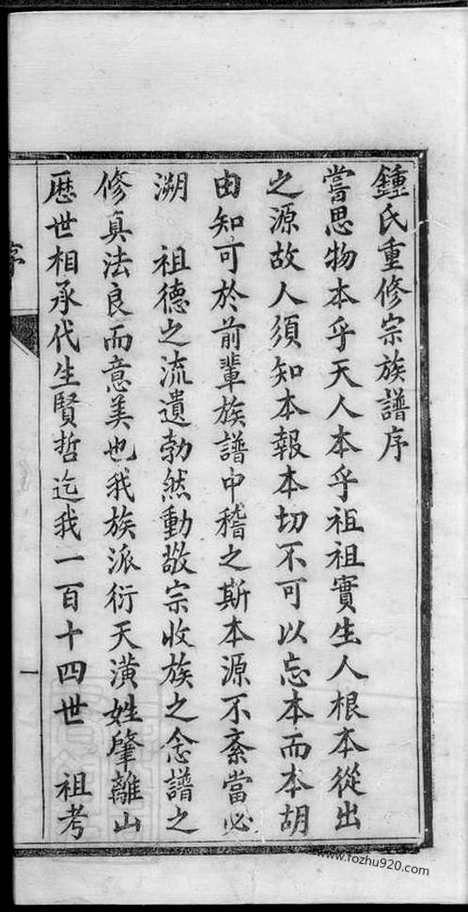 鍾氏重修宗族譜序
嘗思物本乎天人本乎祖祖實生人根本從出
之源故人須知本報本切不可以忘本而本胡
由知可於前輩族譜中稽之斯本源不紊當必
溯　祖德之流遺勃然動敬宗收族之念譜之
修真法良而意美也我族派衍天潢姓肇離山
歷世相承代生賢哲迄我一百十四世　祖考
序
一
www.fozhu920.com